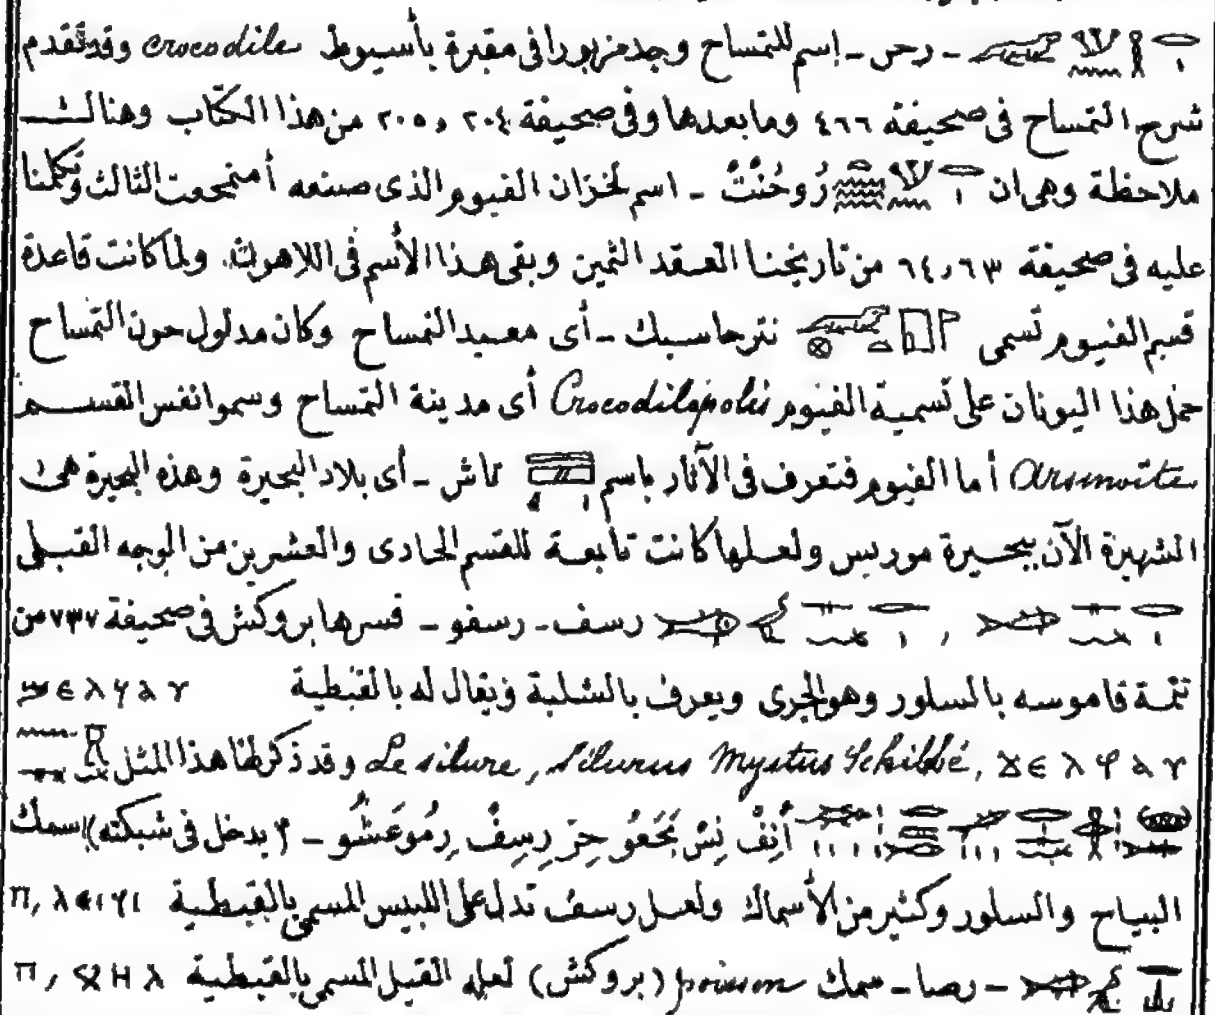 - رحس - إسم للتمساح وجد مزبورا فى مقبرة بأسيوط crocodile وقد تقدم
شرح التمساح فى صحيفة ٤٦٦ وما بعدها وفى صحيفة ٢٠٤ و ٢٠٥ من هذا الكتاب وهنالك
ملاحظة وهى ان رُوحُنْتْ - اسم لخزان الفيوم الذى صنعه أمنمحعت الثالث وتكلمنا
عليه فى صحيفة ٦٣ و ٦٤ من تاريخنا العقد الثمين وبقى هذا الأسم فى اللاهون ولما كانت قاعدة
قسم الفيوم تسمى نترحاسبك - أى معبد التمساح وكان مدلول حون التمساح
حمل هذا اليونان على تسمية الفيوم Crocodilopolis أى مدينة التمساح وسموا نفس القسم
Arsinoïte أما الفيوم فتعرف فى الآثار باسم تاش - أى بلاد البحيرة وهذه البحيرة هى
الشهيرة الآن ببحيرة موريس ولعلها كانت تابعة للقسم الحادى والعشرين من الوجه القبلى
, رسف - رسفو - فسرها بروكش فى صحيفة ٧٣٧ من
تتمة قاموسه بالسلور وهو الجرى ويعرف بالشلبة ويقال له بالقبطية
Le silure, silurus Mystus Schilbé, وقد ذكر لها هذا المثل
أُنِفْ نِسْ بَحَعُو حِرْ رِسِفْ رِمُو عَشُو - (م يدخل فى شبكته) اسماك
البياح والسلور وكثير من الأسماك ولعل رسف تدل على اللبيس المسمى بالقبطية
- رصا - سمك poisson (بروكش) لعله القيل المسمى بالقبطية